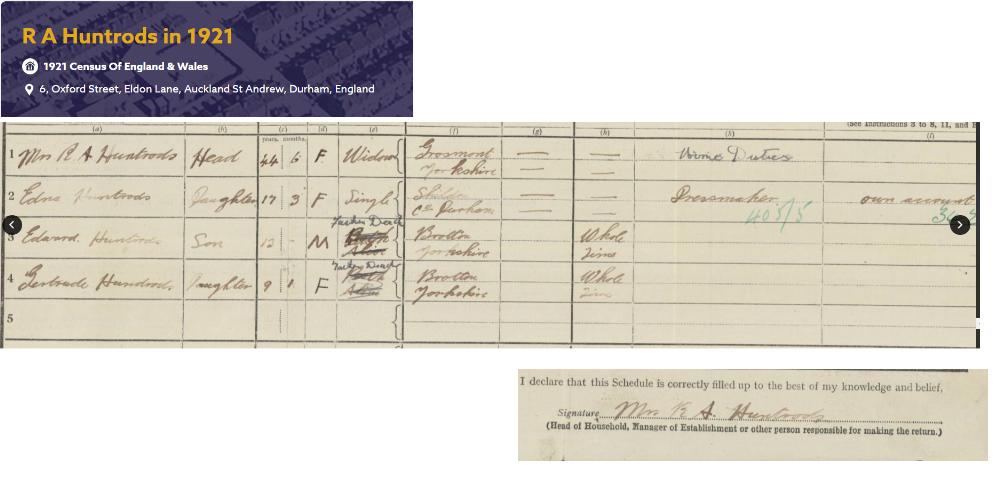 R A Huntrods in 1921
1921 Census Of England & Wales
6, Oxford Street, Eldon Lane, Auckland St Andrew, Durham, England
(See Instructions 3 to 8, 11, and
(a) (b) (c) (d) (e) (f) (g) (h) (k) (l)
years. months.
1 Mrs R A Huntrods Head 44 6 F Widow Grosmont — — Home Duties
Yorkshire — —
2 Edna Huntrods Daughter 17 3 F Single Shildon — — Dressmaker own account
Co Durham — — 405/5
Father Dead
3 Edward Huntrods Son 12 - M Both Brotton Whole
Alive Yorkshire Time
Father Dead
4 Gertrude Huntrods Daughter 9 1 F Both Brotton Whole
Alive Yorkshire Time
5
I declare that this Schedule is correctly filled up to the best of my knowledge and belief,
Signature Mrs R A. Huntrods
(Head of Household, Manager of Establishment or other person responsible for making the return.)